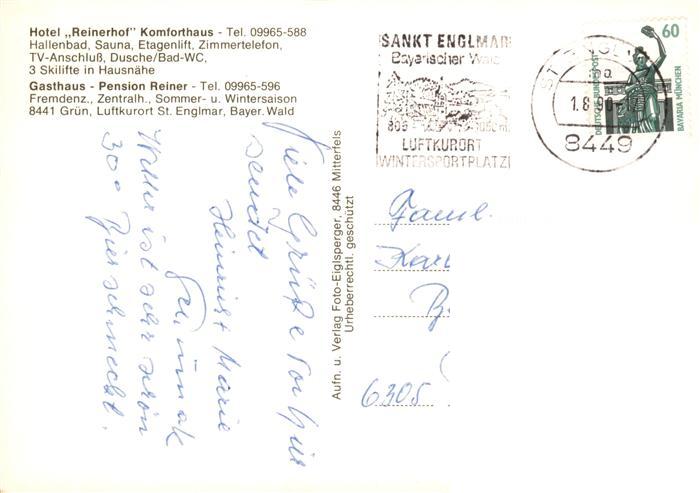 Hotel „Reinerhof" Komforthaus - Tel. 09965-588
Hallenbad, Sauna, Etagenlift, Zimmertelefon,
TV-Anschluß, Dusche/Bad-WC,
3 Skilifte in Hausnähe
Gasthaus - Pension Reiner - Tel. 09965-596
Fremdenz., Zentralh., Sommer- u. Wintersaison
8441 Grün, Luftkurort St. Englmar, Bayer. Wald
Viele Grüße von hier
sendet
Heinrich + Marie
Wetter ist sehr schön
30° Bier schmeckt.
Aufn. u. Verlag Foto-Eiglsperger, 8446 Mitterfels
Urheberrechtl. geschützt
SANKT ENGLMAR
Bayerischer Wald
LUFTKURORT
WINTERSPORTPLATZ
ST. ENGL
1.8.90
8449
60
DEUTSCHE BUNDESPOST
BAVARIA MÜNCHEN
Faml.
Kar
B
6305